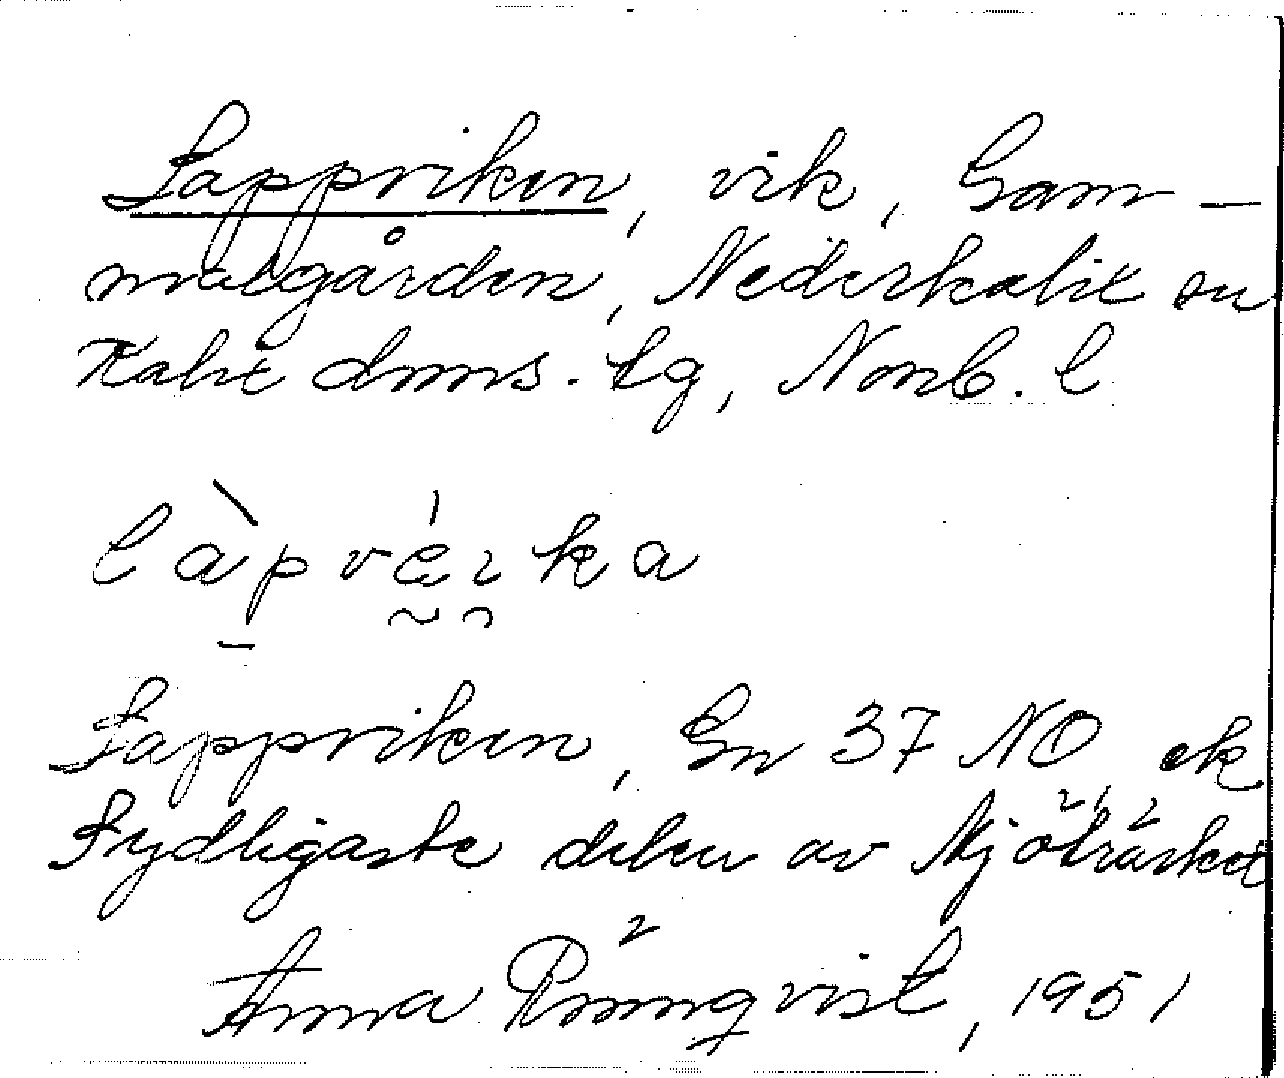 Lappviken, vik, Gam-
melgården, Nederkalix sn
Kalix doms. tg, Norrb. l
làpvéɪka
Lappviken, Gn 37 NO, ek
Sydligaste delen av Mjöträsket
Anna Rönnqvist, 1951